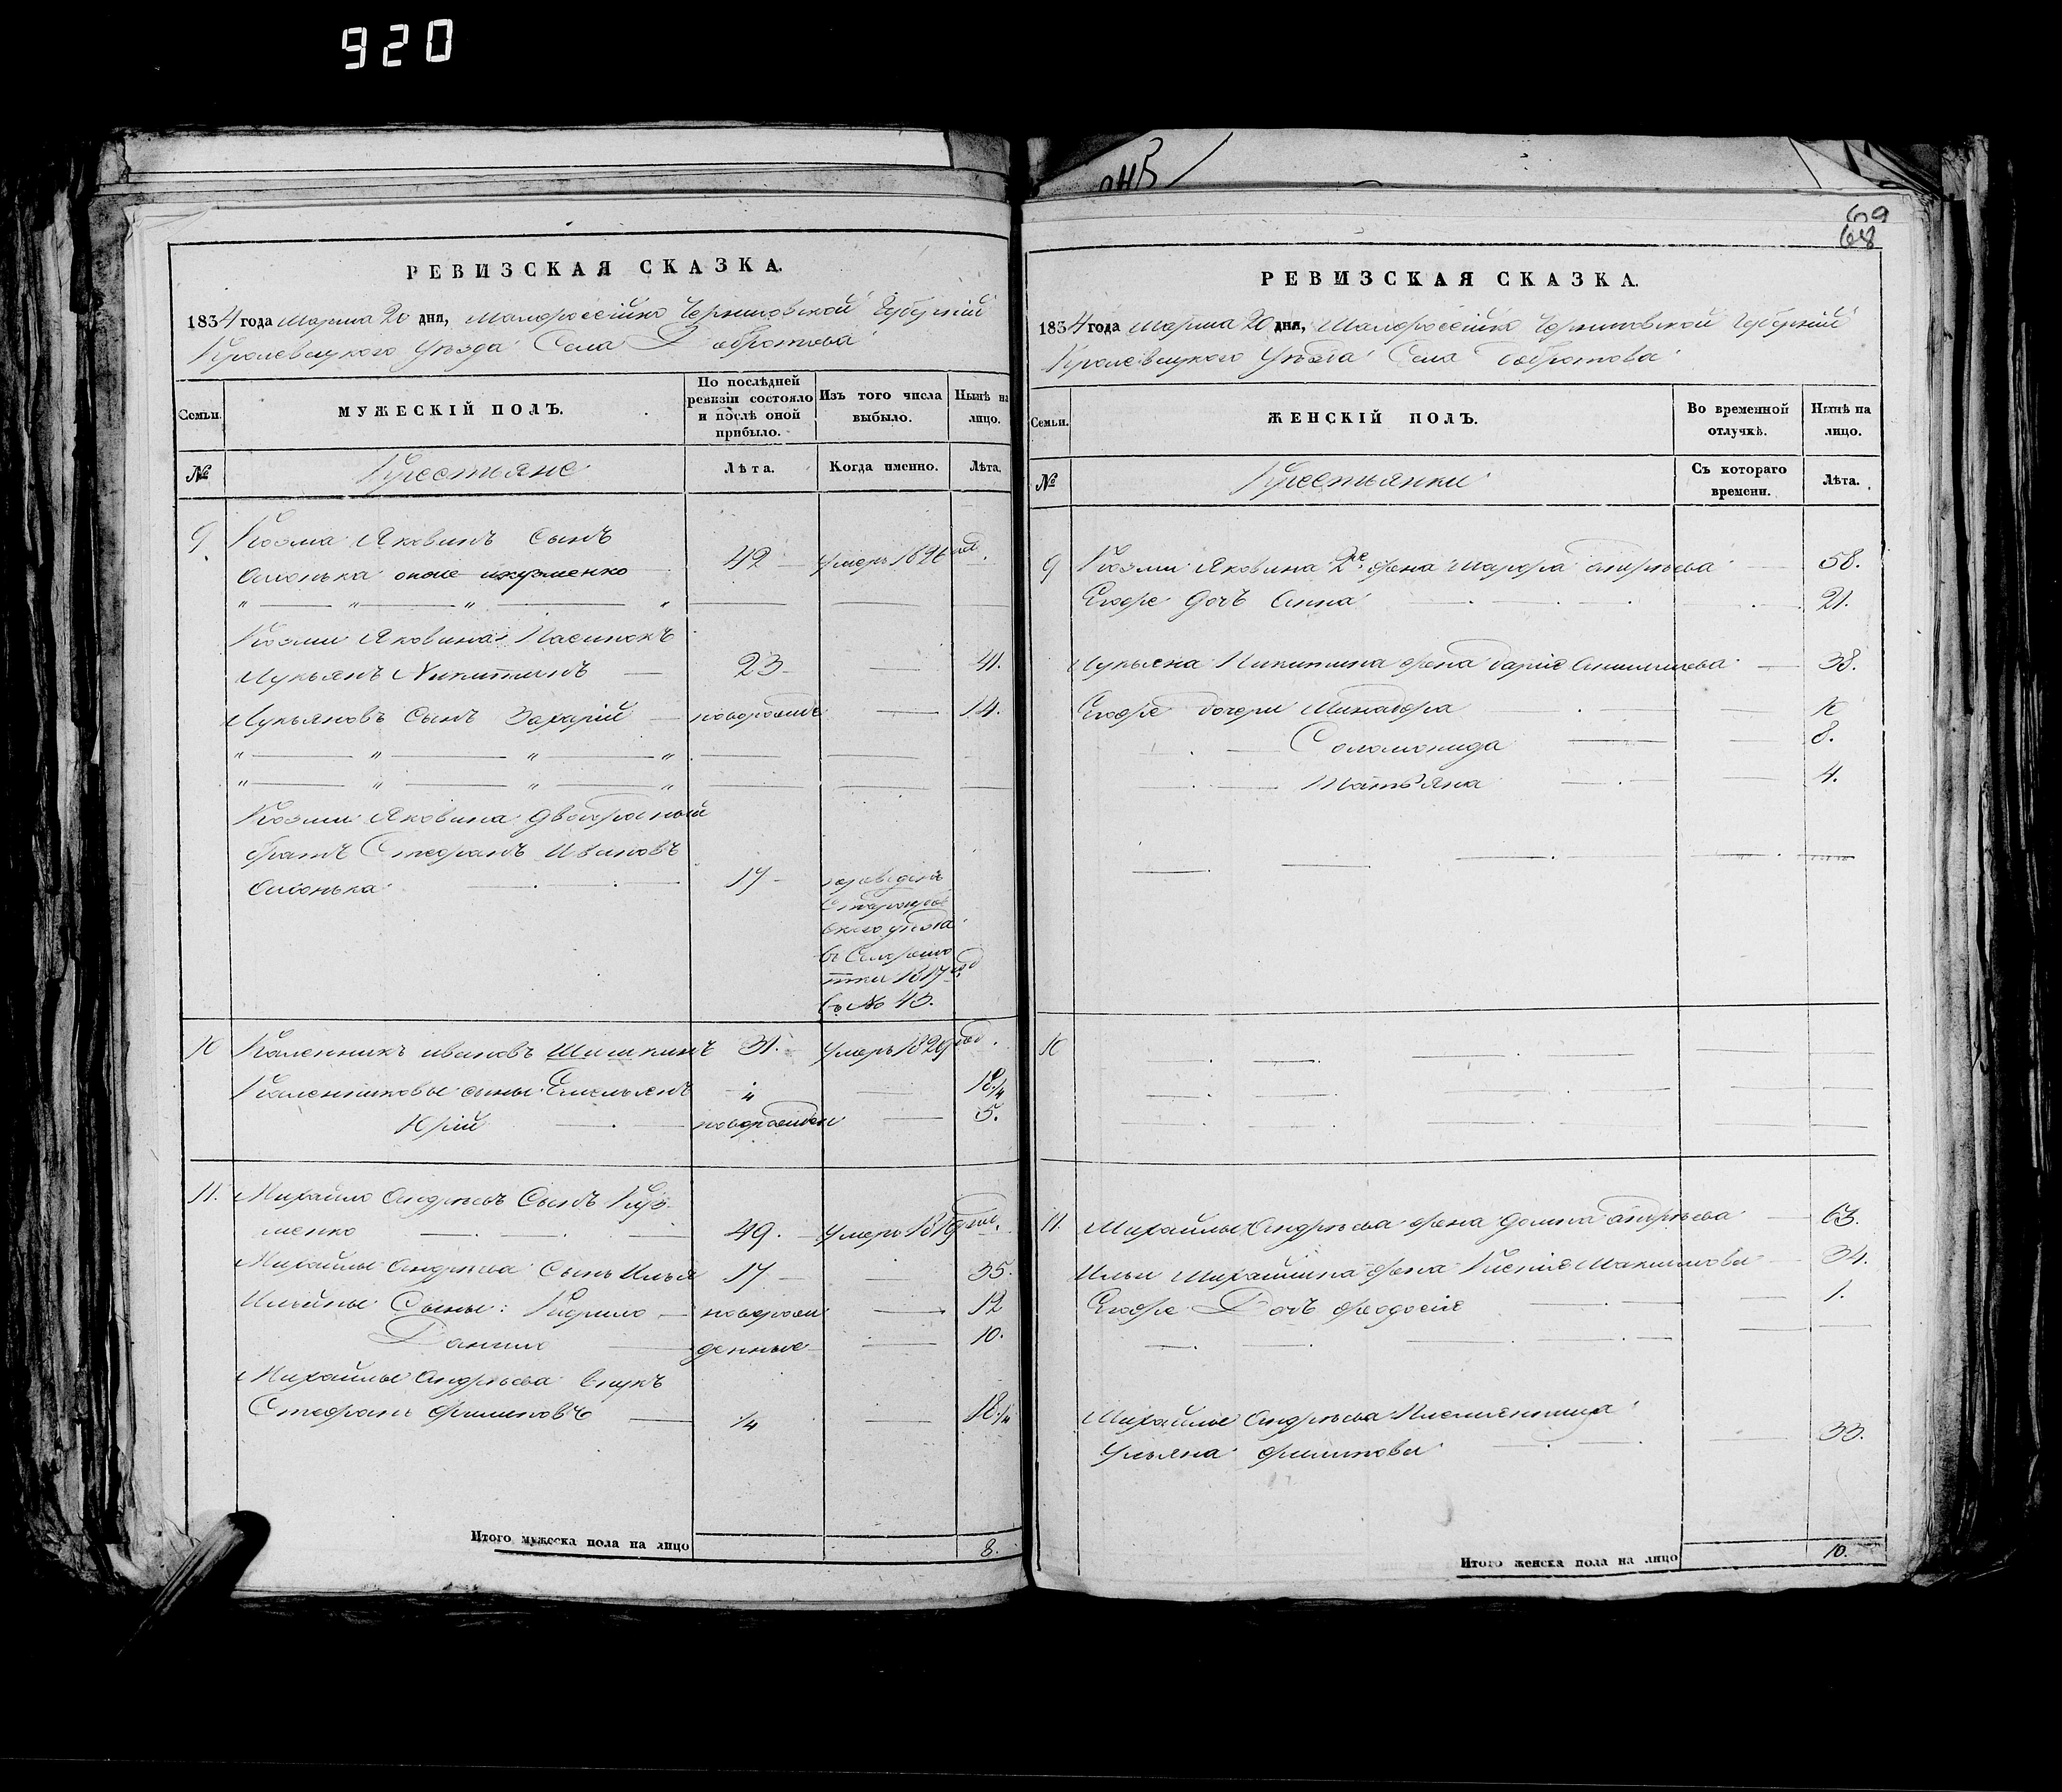 920
РЕВИЗСКАЯ СКАЗКА.
1834 года Марта 20 дня, Малороссійско Черниговской Губерніи
Кролевецкого уезда Села Добротова
Семьи.
МУЖЕСКІЙ ПОЛЪ.
По послѣдней ревизіи состояло и послѣ оной прибыло.
Изъ того числа выбыло.
Нынѣ на лицо.
№
Крестьяне
Лѣта.
Когда именно.
Лѣта.
9
Козма Яковинъ Сынъ
42
умеръ 1826 год.
Козми Яковина Пасинокъ
Лукьянъ Никитинъ
23
41.
Лукьяновъ Сынъ Захарій
новорожденъ
14.
Козми Яковина двоюродный
братъ Стефанъ Ивановъ
17
уезда
1817 год
№ 43.
10
Каленникъ ивановъ Шишкинъ
31.
умеръ 1829 год.
Каленниковы сыны Емельянъ
1/4
18 1/4
Юрій
новорожден
5.
11.
Михайло Андреевъ Сынъ Куз-
менко
49.
умеръ 1819 год.
Михайлы Андреева Сынъ Илья
17
35.
Ильины Сыны: Кирило
новорож
12
Данило
денные
10.
Михайлы Андреева внукъ
Стефанъ Филиповъ
1/4
18 1/4
Итого мужеска пола на лицо
8.
69
68
РЕВИЗСКАЯ СКАЗКА.
1834 года Марта 20 дня, Малороссійско Черниговской Губерніи
Кролевецкого уезда Села Добротова
Семьи.
ЖЕНСКІЙ ПОЛЪ.
Во временной отлучкѣ.
Нынѣ на лицо.
№
Крестьянки
Съ котораго времени.
Лѣта.
9
Козми Яковина 2я жена Марфа Андреева
58.
Егоже дочь Анна
21.
Лукьяна Никитина жена Дарія Анисимова
38.
Егоже дочери Минадора
10
Соломонида
8.
Татьяна
4.
10
11.
Михайлы Андреева жена Домна Андреева
63.
Ильи Михайлина жена Ксенія Максимова
34.
Егоже Дочь Феодосія
1.
Михайлы Андреева Племянница
Ульяна Филипова
33.
Итого женска пола на лицо
10.